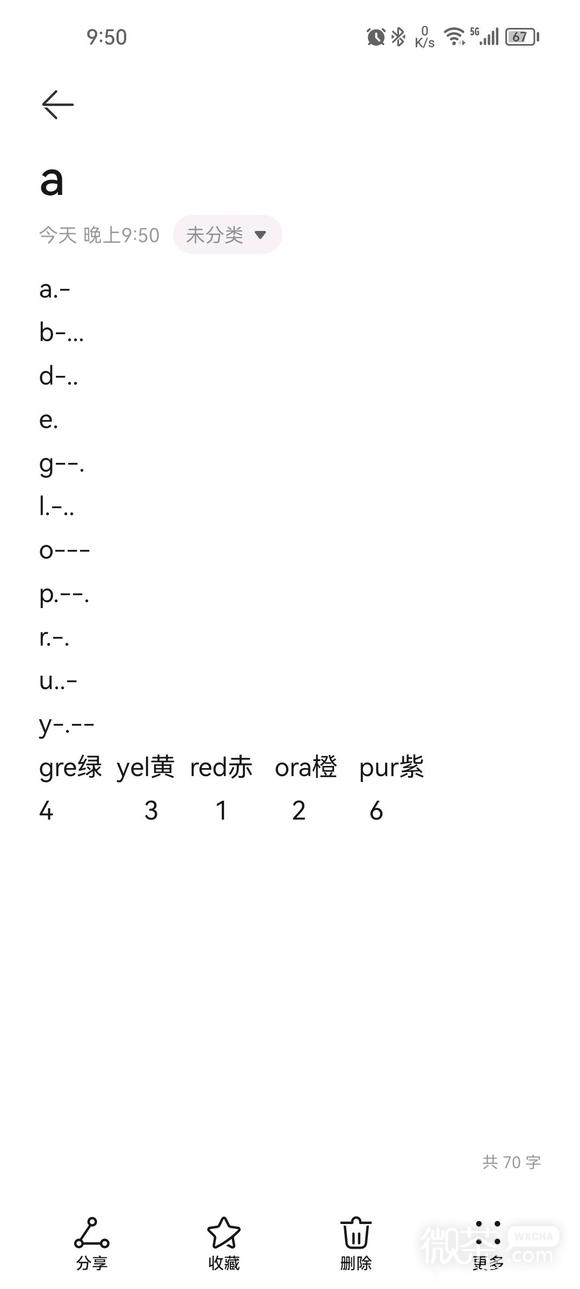 9:50 0 K/s 5G 67
a
今天 晚上9:50 未分类
a.-
b-...
d-..
e.
g--.
l.-..
o---
p.--.
r.-.
u..-
y-.--
gre绿 yel黄 red赤 ora橙 pur紫
4 3 1 2 6
共 70 字
分享 收藏 删除 更多
微茶 WXCHA .com